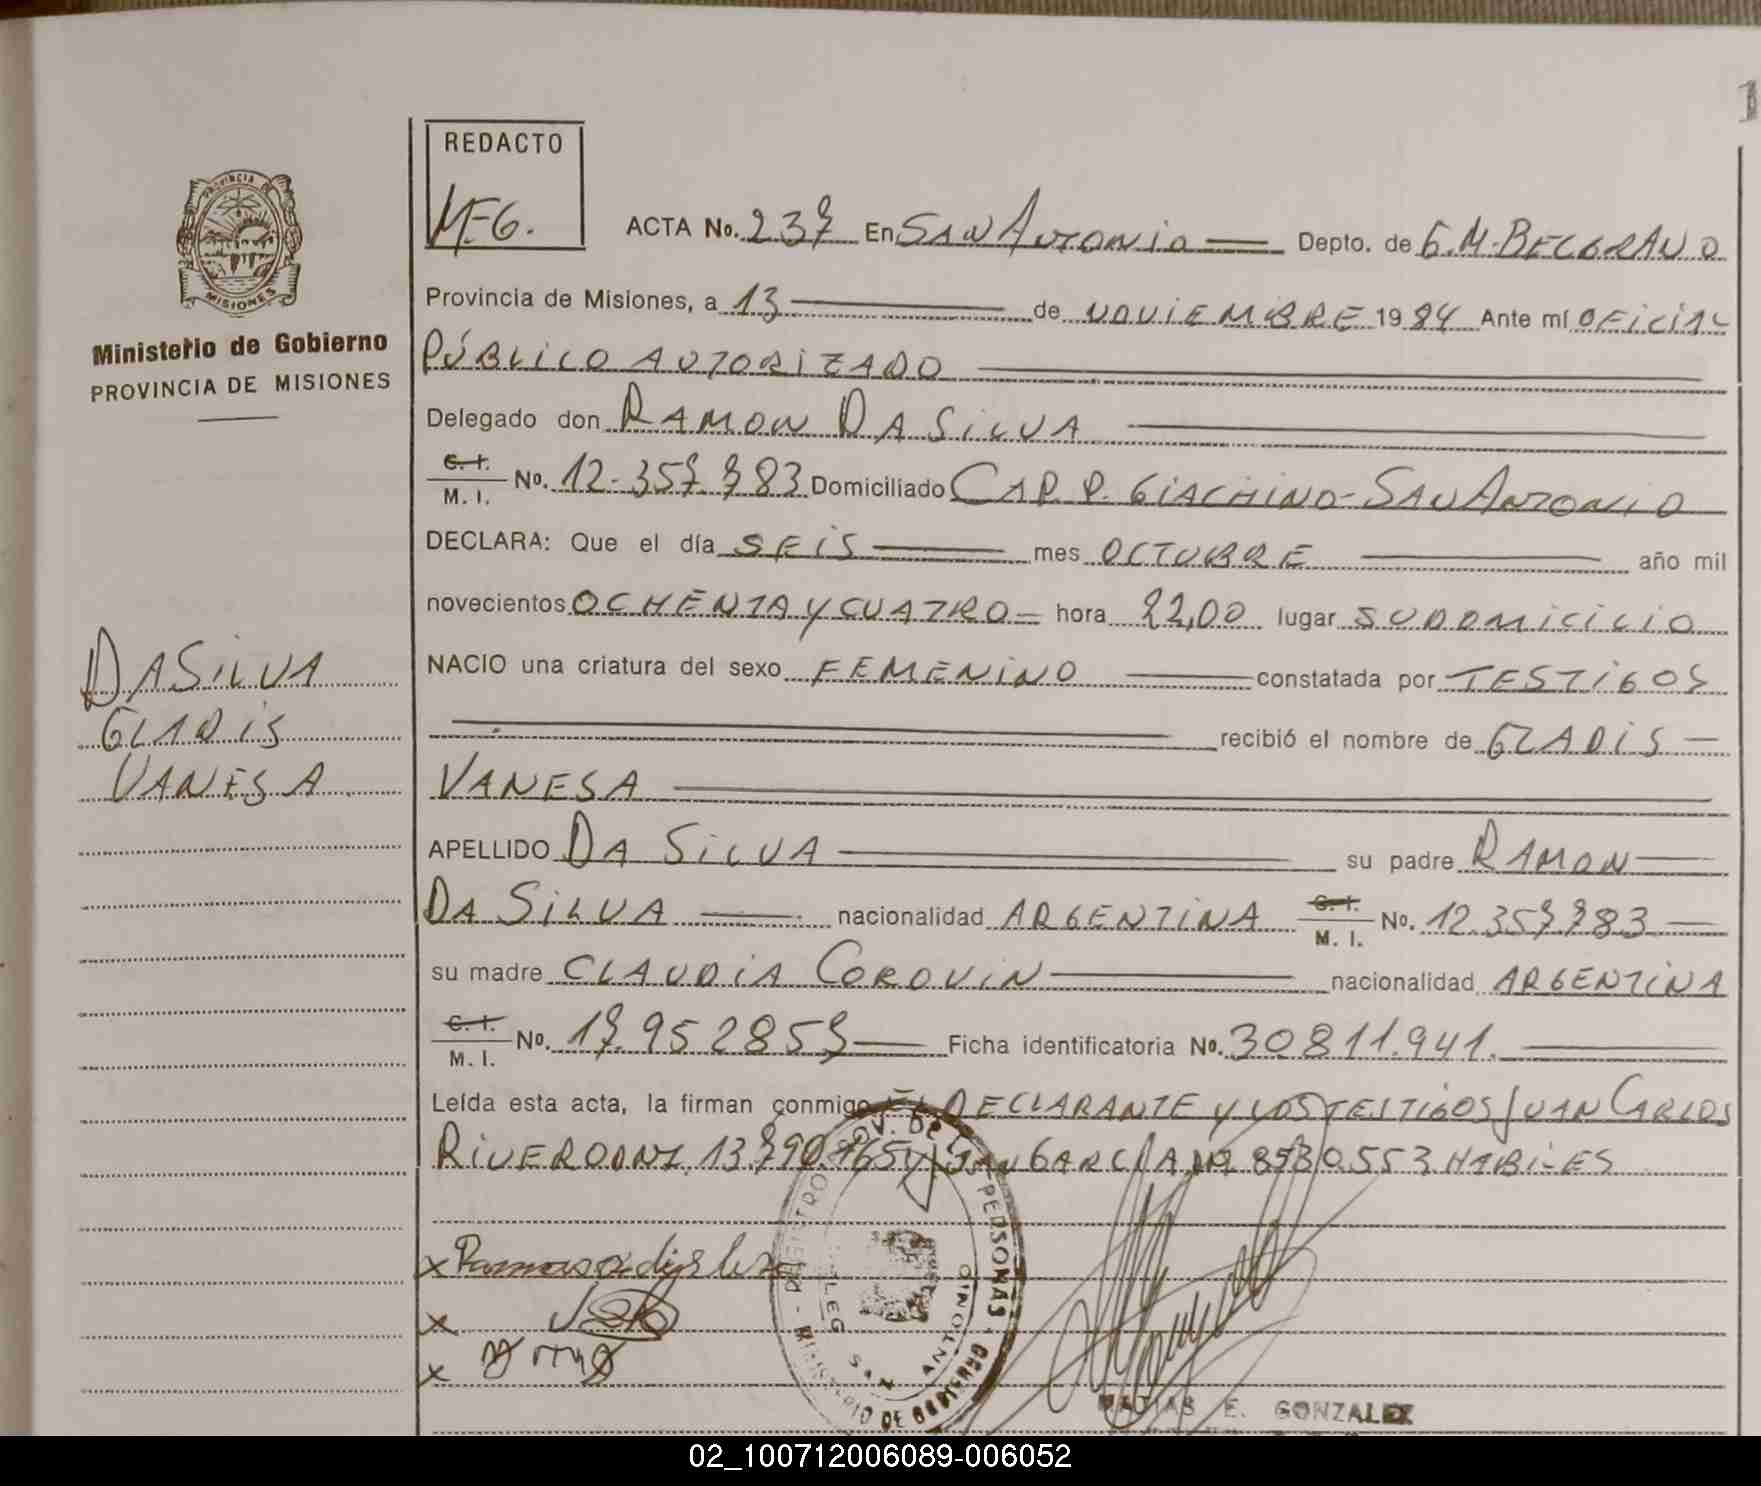 REDACTO
M.E.G.
ACTA No. 237 En SAN ANTONIO Depto. de G.M.BELGRANO
PROVINCIA DE
MISIONES
Provincia de Misiones, a 13 de NOVIEMBRE 1984 Ante mí OFICIAL
Ministerio de Gobierno
PROVINCIA DE MISIONES
PÚBLICO AUTORIZADO
Delegado don RAMON DA SILVA
C. I.
M. I. No. 12.357.783 Domiciliado CAP. P. GIACHINO - SAN ANTONIO
DECLARA: Que el día SEIS mes OCTUBRE año mil
novecientos OCHENTA Y CUATRO hora 22,00 lugar SU DOMICILIO
DA SILVA
GLADIS
VANESA
NACIO una criatura del sexo FEMENINO constatada por TESTIGOS
recibió el nombre de GLADIS
VANESA
APELLIDO DA SILVA su padre RAMON
DA SILVA nacionalidad ARGENTINA C. I. M. I. No. 12.357.783
su madre CLAUDIA COROVIN nacionalidad ARGENTINA
C. I.
M. I. No. 17.952857 Ficha identificatoria No. 30811.941.
Leída esta acta, la firman conmigo EL DECLARANTE Y LOS TESTIGOS JUAN CARLOS
RIVERO DNI. 13.790.765 Y JUAN GARCIA 8530.553 HABILES
PERSONAS
MINISTERIO DE GOBIERNO
SAN ANTONIO
MATIAS E. GONZALEZ
02_100712006089-006052